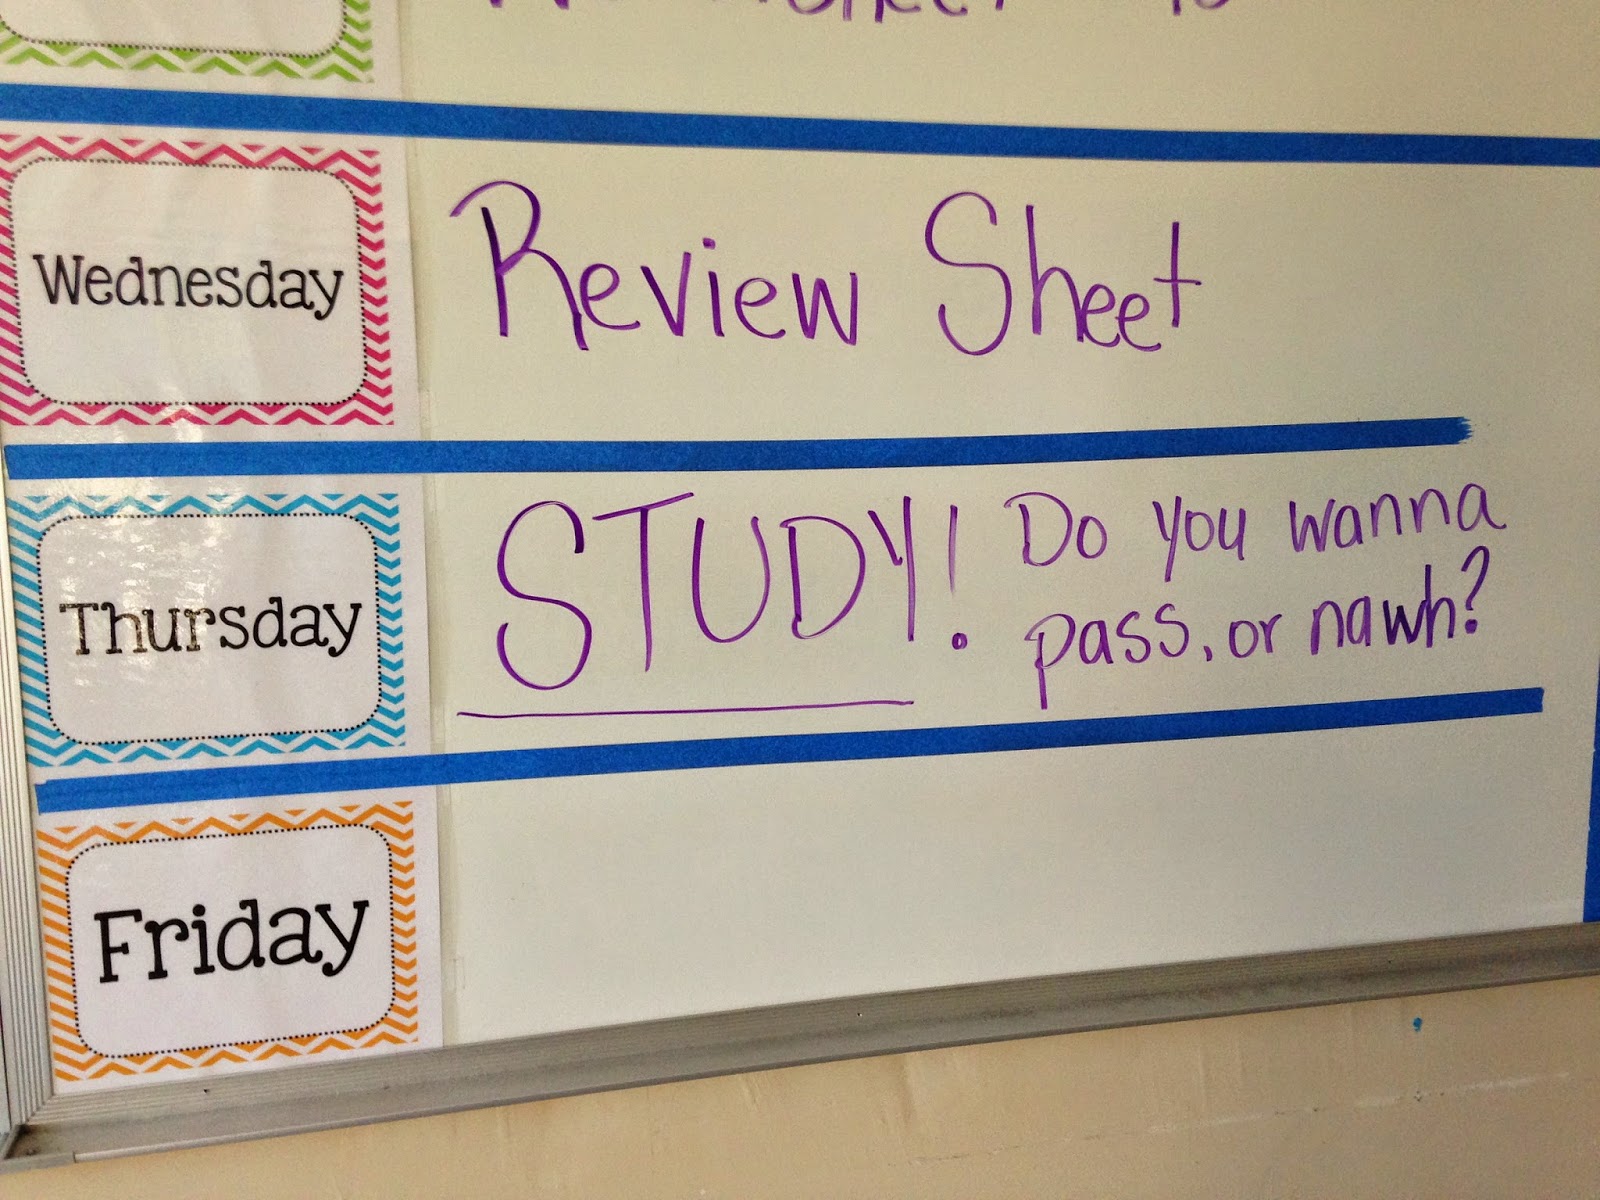 Wednesday
Review Sheet
Thursday
STUDY! Do you wanna
pass, or nawh?
Friday